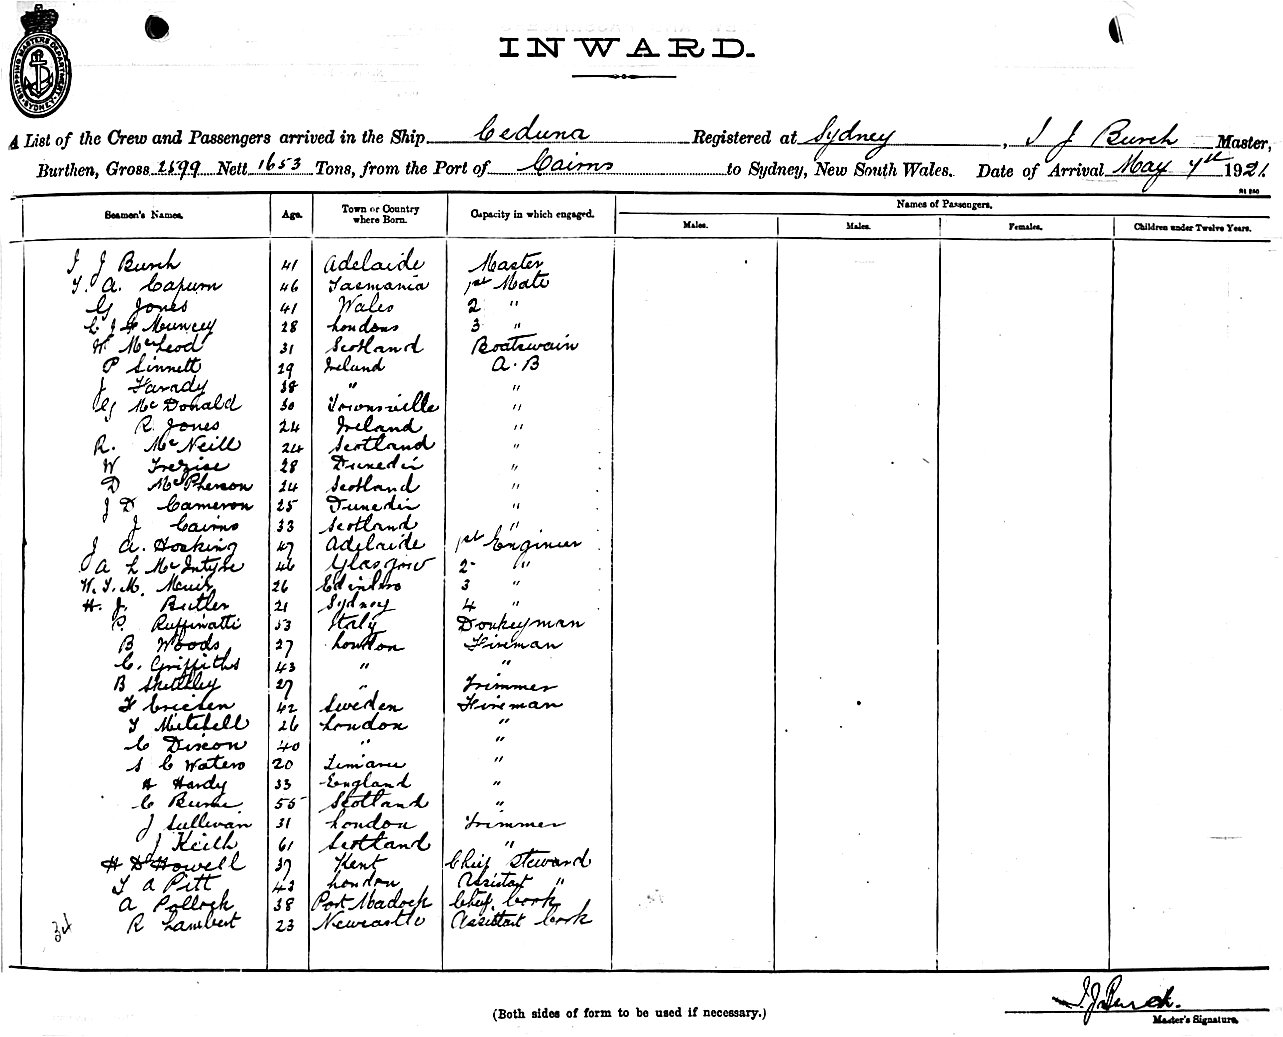 SHIPPING MASTERS DEPARTMENT SYDNEY
INWARD.
A List of the Crew and Passengers arrived in the Ship Ceduna Registered at Sydney, I J Burch Master,
Burthen, Gross 2599 Nett 1653 Tons, from the Port of Cairns to Sydney, New South Wales. Date of Arrival May 7th 1921
Names of Passengers.
Seamen's Names. Age. Town or Country where Born. Capacity in which engaged. Males. Males. Females. Children under Twelve Years.
I J Burch 41 Adelaide Master
T. A. Capurn 46 Tasmania 1st Mate
G Jones 41 Wales 2 "
C J H Muncey 28 London 3 "
W McLeod 31 Scotland Boatswain
P Sinnett 29 Ireland A.B
J Farady 38 " "
G McDonald 30 Townsville "
R. Jones 24 Ireland "
R. McNeill 24 Scotland "
W Trezise 28 Dunedin "
D McPherson 24 Scotland "
J D Cameron 25 Dunedin "
J Cairns 33 Scotland "
J A. Hosking 47 Adelaide 1st Engineer
A L McIntyre 46 Glasgow 2 "
W. T. M. Muir 26 Edinboro 3 "
H. J. Butler 21 Sydney 4 "
P. Ruffinatti 53 Italy Donkeyman
B Woods 27 London Fireman
C. Griffiths 43 " "
B 27 " Trimmer
F Ericsen 42 Sweden Fireman
T Mitchell 26 London "
C Dixon 40 " "
S C Waters 20 Timaru "
A Hardy 33 England "
C 55 Scotland "
J Sullivan 31 London Trimmer
J Keith 61 Scotland "
H D Howell 37 Kent Chief Steward
T A Pitt 43 London Assistant "
A Pollock 38 Port Madock Chief Cook
R Lambert 23 Newcastle Assistant Cook
34
I. J. Burch.
(Both sides of form to be used if necessary.) Master's Signature.